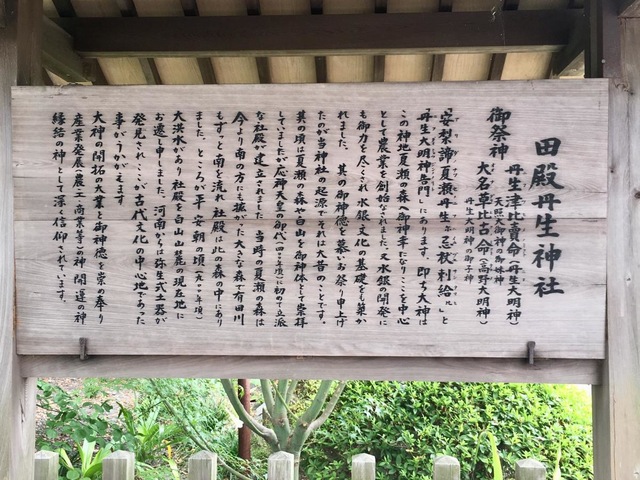 田殿丹生神社
御祭神
丹生津比賣命(丹生大明神)
天照大御神の御妹神
大名草比古命(高野大明神)
丹生大明神の御子神
「安梨諦夏瀬丹生ニ忌杖刺給ル」と
「丹生大明神告門」にあります。即ち大神は
この神地夏瀬の森へ御神幸になりここを中心
として農業を創始なされました。又水銀の開発に
も御力を尽くされ水銀文化の基礎をも築か
れました。其の御神徳を慕いお祭り申上げ
たのが当神社の起源でそれは大昔のことです。
其の頃は夏瀬の森や白山を御神体として崇拝
していましたが応神天皇の御代
に初めて立派
な社殿が建立されました 当時の夏瀬の森は
今より南の方にも拡がった大きな森で有田川
もずっと南を流れ社殿は此の森の中にあり
ました。ところが平安朝の頃
大洪水があり社殿を白山山麓の現在地に
お遷し申しました。河南からは弥生式土器が
発見されここが古代文化の中心地であった
事がうかがえます
大神の開拓の大業と御神徳を崇め奉り
産業発展(農工商業等)の神 開運の神
縁結の神として深く信仰されています。